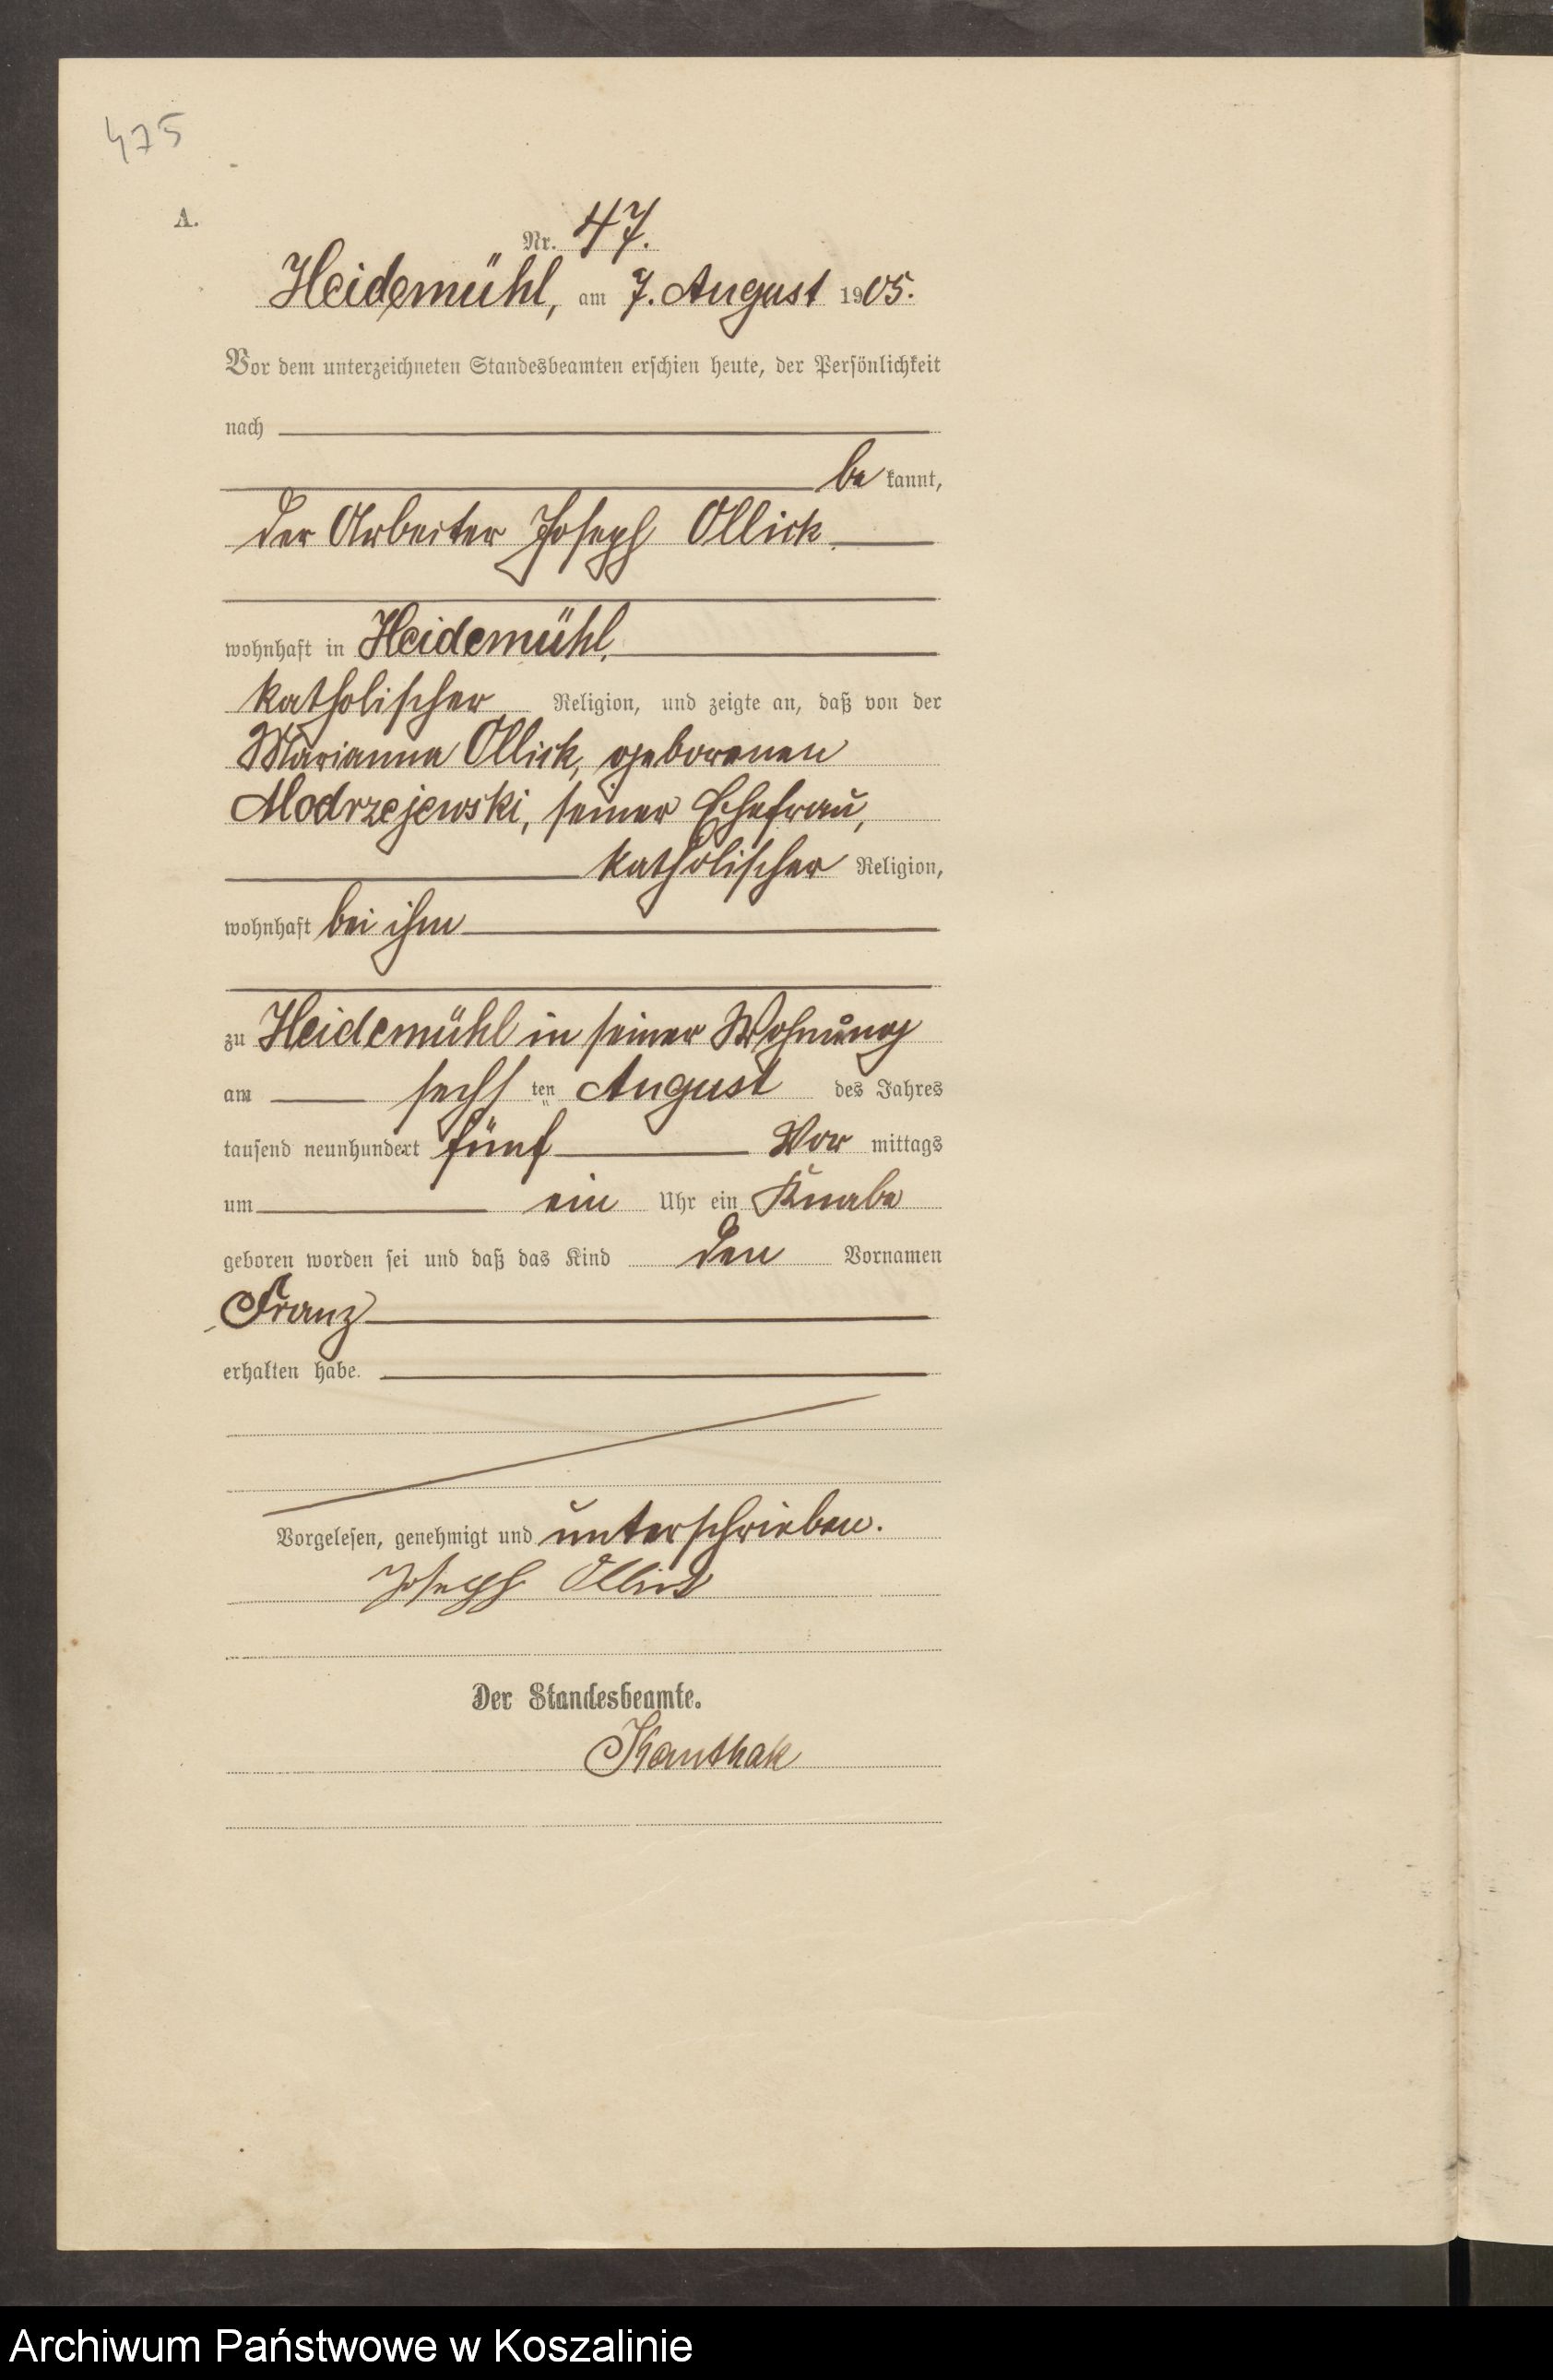 475
A.
Nr. 47.
Heidemühl, am 7. August 1905.
Vor dem unterzeichneten Standesbeamten erschien heute, der Persönlichkeit
nach
be kannt,
der Arbeiter Joseph Ollick
wohnhaft in Heidemühl,
katholischer Religion, und zeigte an, daß von der
Marianna Ollick, geborenen
Modrzejewski, seiner Ehefrau,
katholischer Religion,
wohnhaft bei ihm
zu Heidemühl in seiner Wohnung
am sechs ten August des Jahres
tausend neunhundert fünf Vor mittags
um ein Uhr ein Knabe
geboren worden sei und daß das Kind den Vornamen
Franz
erhalten habe.
Vorgelesen, genehmigt und unterschrieben.
Joseph Ollick
Der Standesbeamte.
Kanthak
Archiwum Państwowe w Koszalinie